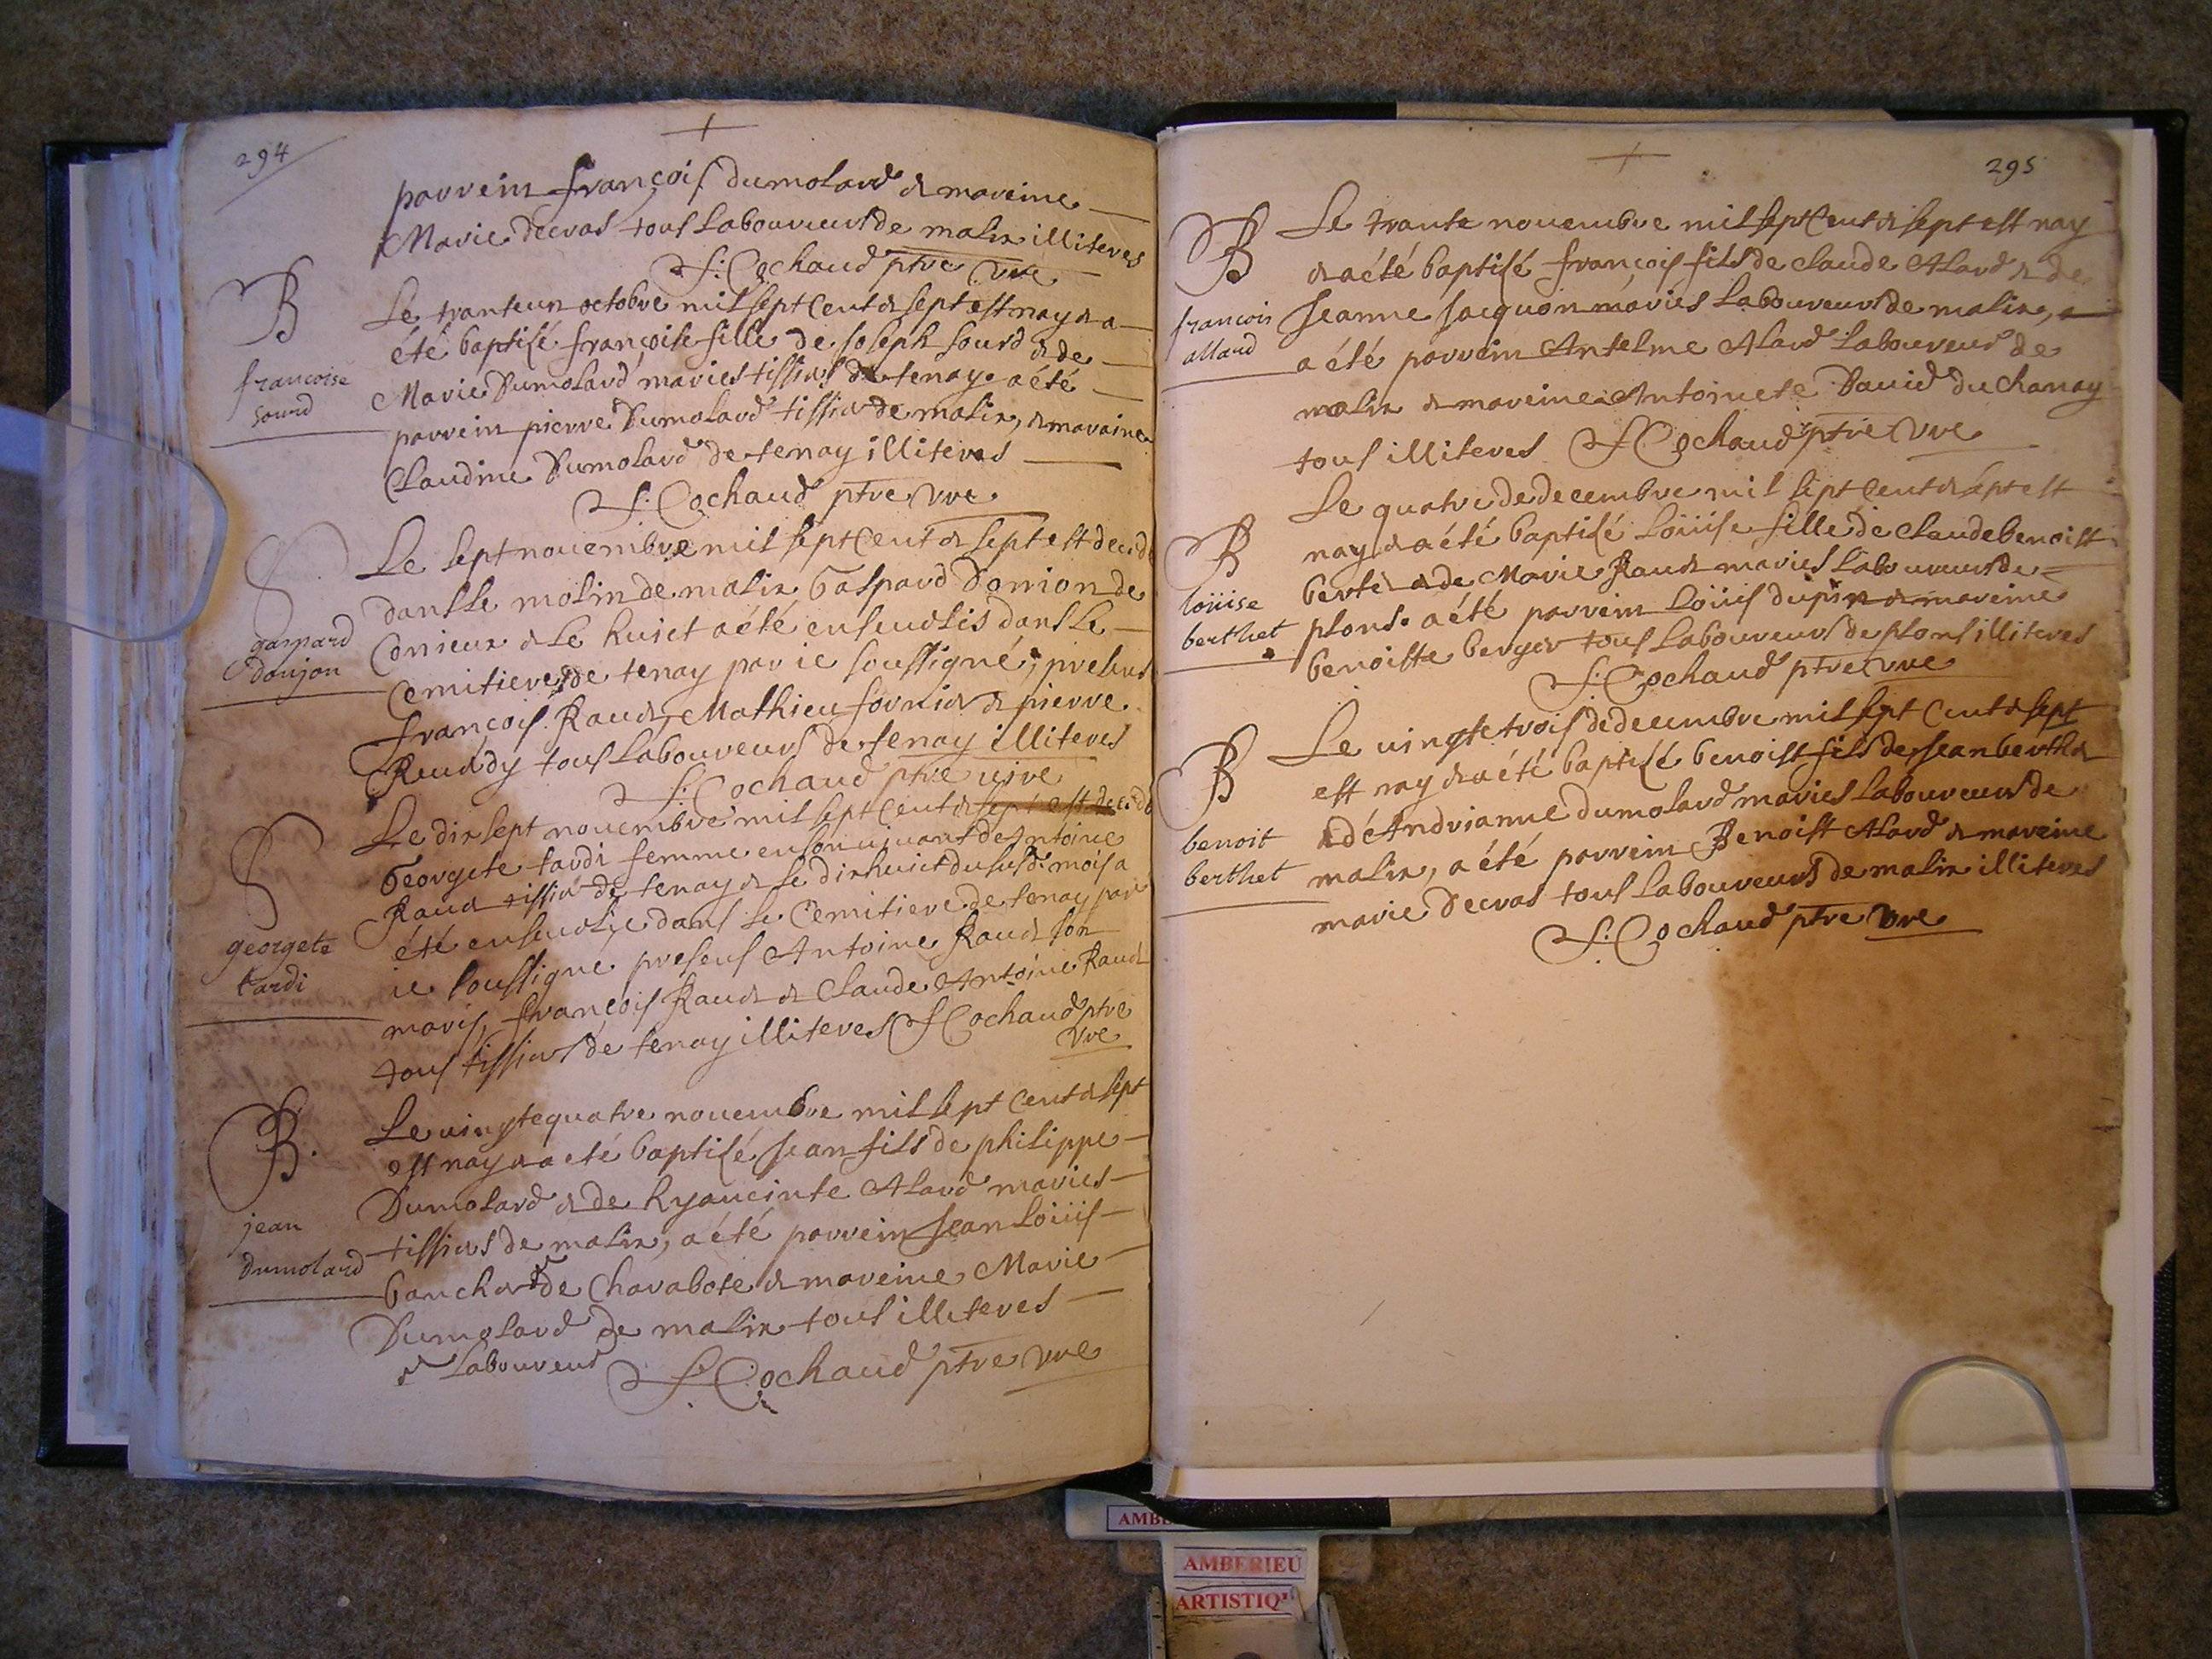 294
parrein françois dumolard & mareine
Marie decras tous laboureurs de malix illiteres
f: Cochaud ptre vre
B
francoise
sourd
Le tranteun octobre mil sept cent & sept est nay & a
été baptisé françoise fille de Joseph sourd & de
Marie Dumolard mariés tissiers de tenay. a été
parrein pierre Dumolard tissier de malix, & maraine
Claudine Dumolard de tenay illiteres
f: Cochaud ptre vre
S
gaspard
donjon
Le sept novembre mil sept cent & sept est decedé
dans le molin de malix Gaspard Donion de
Conieux & le huict a été ensevelis dans le
Cemitiere de tenay par ie soussigné, presens
françois Raud, Mathieu fornier & pierre
tous laboureurs de tenay illiteres
f: Cochaud ptre vire
S
georgete
tardi
Le dix sept novembre mil sept cent & sept est decedé
Georgete tardi femme en son vivant de Antoine
Raud tissier de tenay & le dixhuict du susd. mois a
été ensevelie dans le Cemitiere de tenay par
ie soussigne presens Antoine Raud son
maris, françois Raud & Claude Antoine Raud
tous tissiers de tenay illiteres f Cochaud ptre
vre
B.
jean
dumolard
Le vingtequatre novembre mil sept cent & sept
est nay & a eté baptisé Jean fils de philippe
Dumolard & de hyaucinte Alard mariés
tissiers de malix, a été parrein Jean Loüis
bancher de Charabote & mareine Marie
Dumolard de malix tous illiteres
& laboureur
f: Cochaud ptre vre
295
B
francois
allard
Le trante novembre mil sept cent & sept est nay
& a été baptisé françois fils de claude Alard & de
Jeanne Jacquon mariés laboureurs de malix,
a été parrein Antelme Alard laboureur de
malix & mareine Antoinete David du Chanay
tous illiteres f Cochaud ptre vre
B
loüise
berthet
Le quatre de decembre mil sept cent & sept est
nay & a été baptisé Loüise fille de claude benoist
berté & de Marie Raud mariés laboureurs de
plons. a été parrein Loüis dupin & mareine
benoiste berger tous laboureurs de plons illiteres
f: Cochaud ptre vre
B
benoit
berthet
Le vingtetrois de decembre mil sept cent & sept
est nay & a été baptisé benoist fils de Jean berthet
& d'Andrianne dumolard mariés laboureurs de
malix, a été parrein Benoist Alard & mareine
marie Decras tous laboureurs de malix illiteres
f: Cochaud ptre vre
AMBERIEU
ARTISTIQ